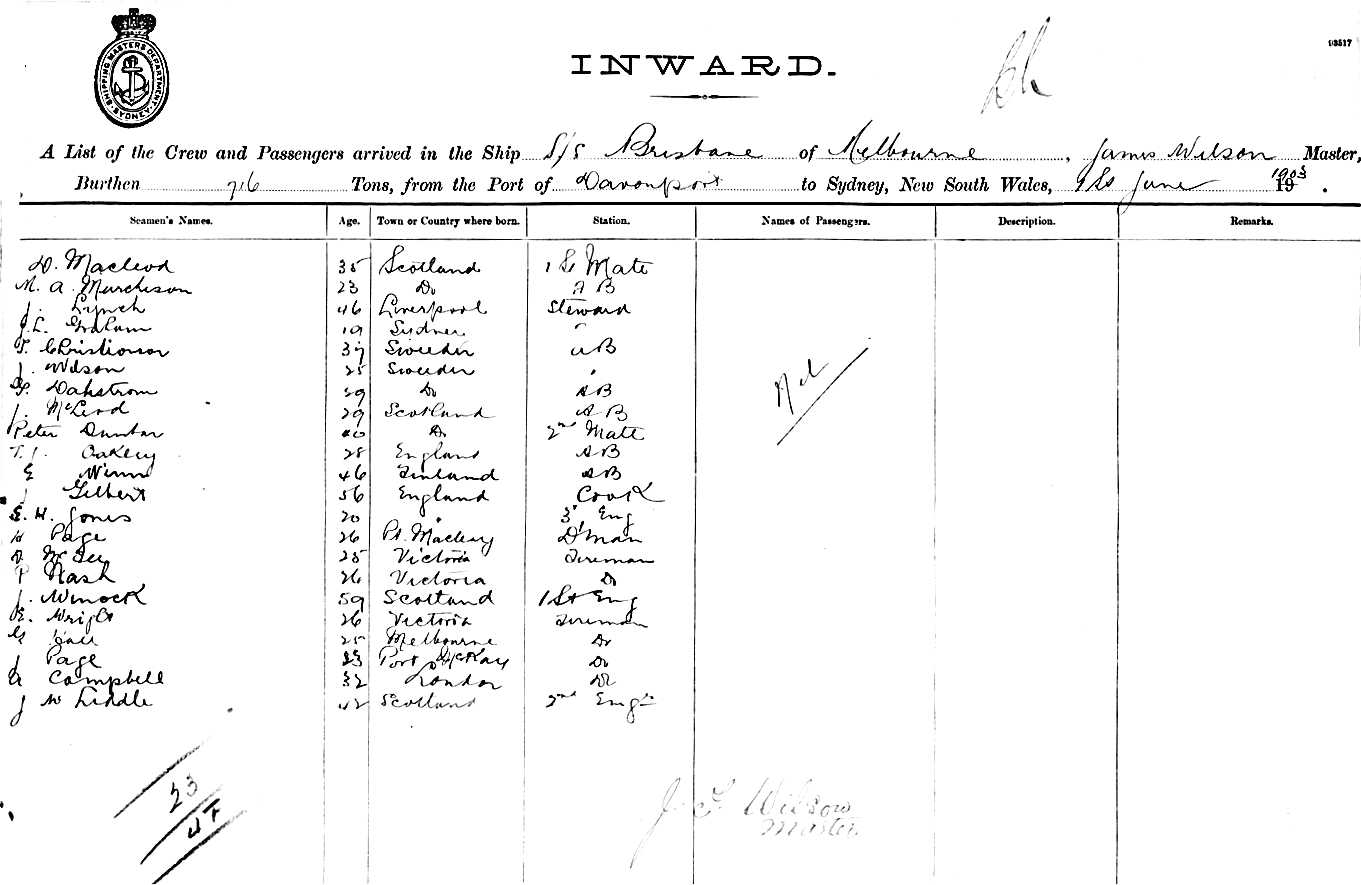 SHIPPING MASTERS DEPARTMENT. SYDNEY.
93517
INWARD.
A List of the Crew and Passengers arrived in the Ship S/S Brisbane of Melbourne, James Wilson Master,
Burthen 716 Tons, from the Port of Davonport to Sydney, New South Wales, 1st June 1903.
Seamen's Names. Age. Town or Country where born. Station. Names of Passengers. Description. Remarks.
D. Macleod 35 Scotland 1 St Mate
M. A. Murchison 23 Do A B
J. Lynch 46 Liverpool Steward
J. L. Graham 19 Sydney "
T. Christionson 37 Sweeden A B
J. Wilson 25 Sweeden "
Dahstrom 29 Do A B
J. McLeod 29 Scotland A B
Peter Dunbar 40 Do 2nd Mate
T. J. Oakley 28 England A B
E Winn 46 Finland A B
J Gilbert 56 England Cook
E. H. Jones 20 " 3d Eng
H Page 26 Pt. Macleay D'man
McGee 25 Victoria Fireman
P Nash 26 Victoria Do
J. Winock 59 Scotland 1 St Eng
E. Wright 26 Victoria Fireman
25 Melbourne Do
J Page 23 Port McKay Do
A Campbell 32 London Do
J W Liddle 42 Scotland 2nd Engr
Nil
23
J F Wilson
Master